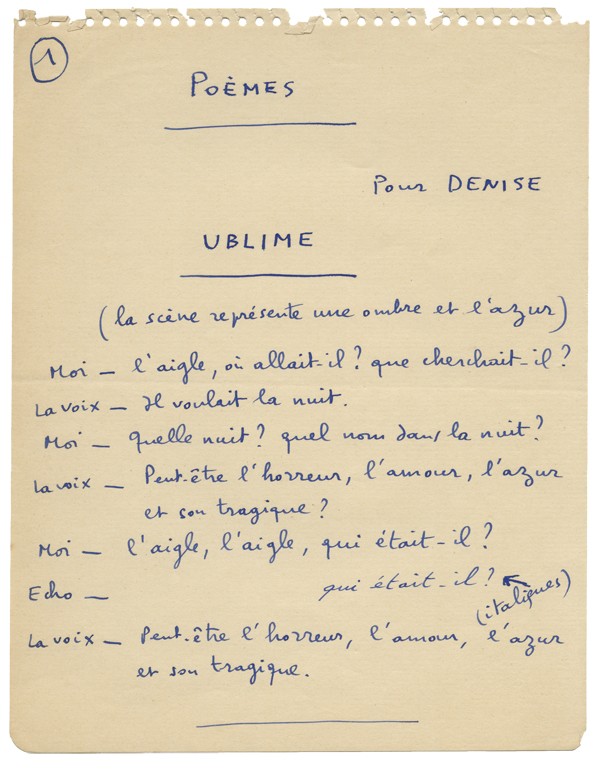 1
POÈMES
Pour DENISE
UBLIME
(la scène représente une ombre et l'azur)
Moi — l'aigle, où allait-il? que cherchait-il?
La voix — Il voulait la nuit.
Moi — quelle nuit? quel nom dans la nuit?
La voix — Peut-être l'horreur, l'amour, l'azur
et son tragique?
Moi — l'aigle, l'aigle, qui était-il?
Echo — qui était-il?
(italiques)
La voix — Peut-être l'horreur, l'amour, l'azur
et son tragique.